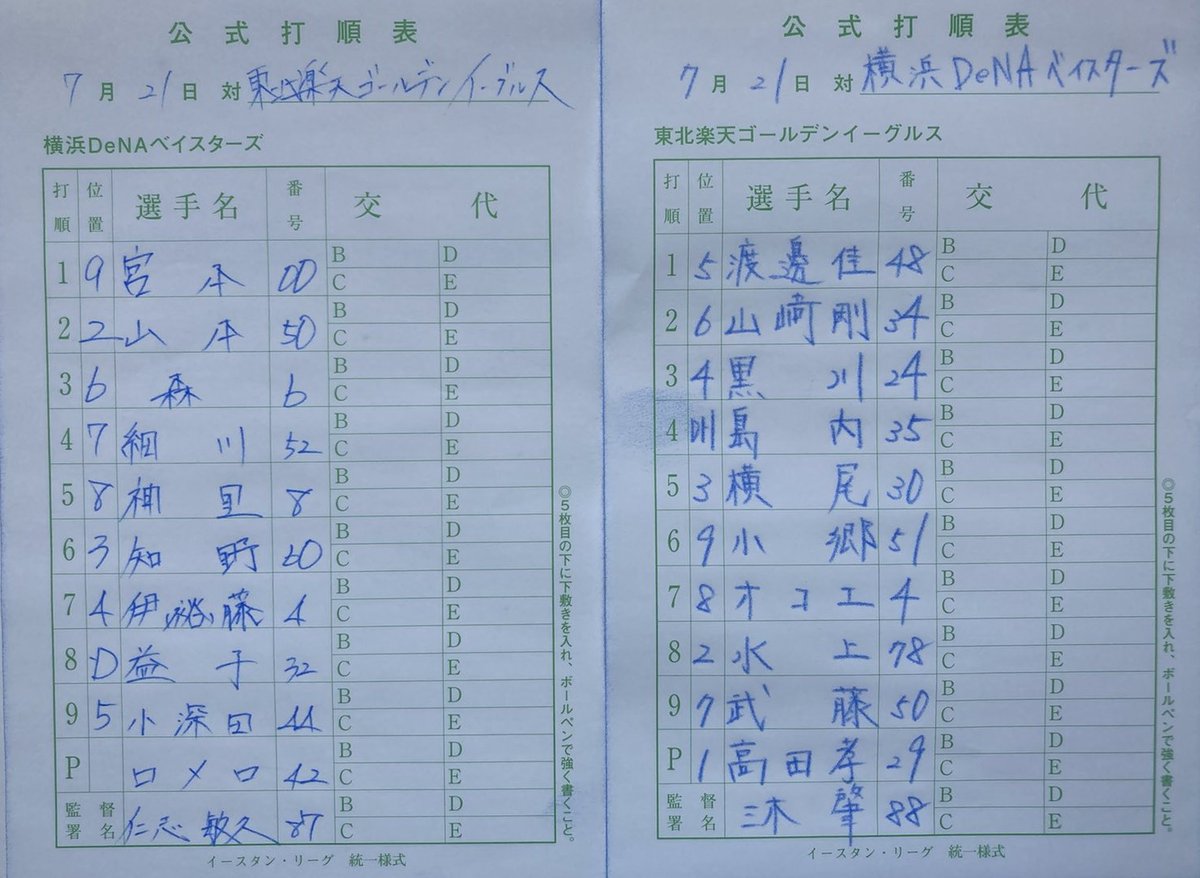 公式打順表
7月21日 対 東北楽天ゴールデンイーグルス
横浜DeNAベイスターズ
打順 位置 選手名 番号 交代
1 9 宮本 00 B D C E
2 2 山本 50 B D C E
3 6 森 6 B D C E
4 7 細川 52 B D C E
5 8 神里 8 B D C E
6 3 知野 60 B D C E
7 4 伊藤裕 4 B D C E
8 D 益子 32 B D C E
9 5 小深田 44 B D C E
P ロメロ 42 B D C E
監督署名 仁志敏久 87 B D C E
◎5枚目の下に下敷きを入れ、ボールペンで強く書くこと。
イースタン・リーグ 統一様式
公式打順表
7月21日 対 横浜DeNAベイスターズ
東北楽天ゴールデンイーグルス
打順 位置 選手名 番号 交代
1 5 渡邊佳 48 B D C E
2 6 山﨑剛 34 B D C E
3 4 黒川 24 B D C E
4 島内 35 B D C E
5 3 横尾 30 B D C E
6 9 小郷 51 B D C E
7 8 オコエ 4 B D C E
8 2 水上 78 B D C E
9 7 武藤 50 B D C E
P 1 高田孝 29 B D C E
監督署名 三木肇 88 B D C E
◎5枚目の下に下敷きを入れ、ボールペンで強く書くこと。
イースタン・リーグ 統一様式